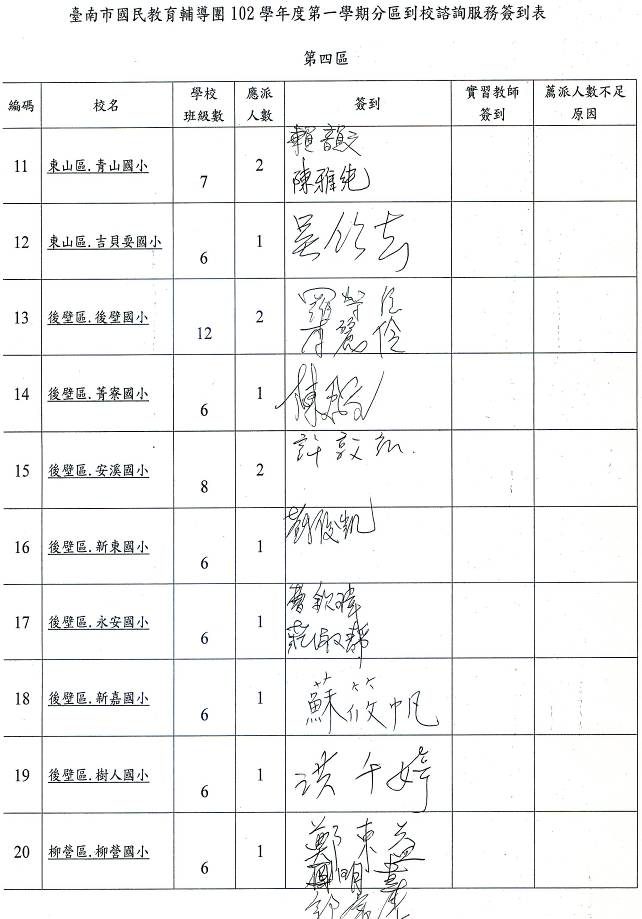 臺南市國民教育輔導團102學年度第一學期分區到校諮詢服務簽到表
第四區
編碼 校名 學校班級數 應派人數 簽到 實習教師簽到 薦派人數不足原因
11 東山區.青山國小 7 2 賴韻文
陳雅純
12 東山區.吉貝耍國小 6 1
13 後壁區.後壁國小 12 2
14 後壁區.菁寮國小 6 1 陳
15 後壁區.安溪國小 8 2 許敦
16 後壁區.新東國小 6 1 劉俊凱
17 後壁區.永安國小 6 1 曾欽瑋
莊淑
18 後壁區.新嘉國小 6 1 蘇筱帆
19 後壁區.樹人國小 6 1 洪千婷
20 柳營區.柳營國小 6 1 鄭東益